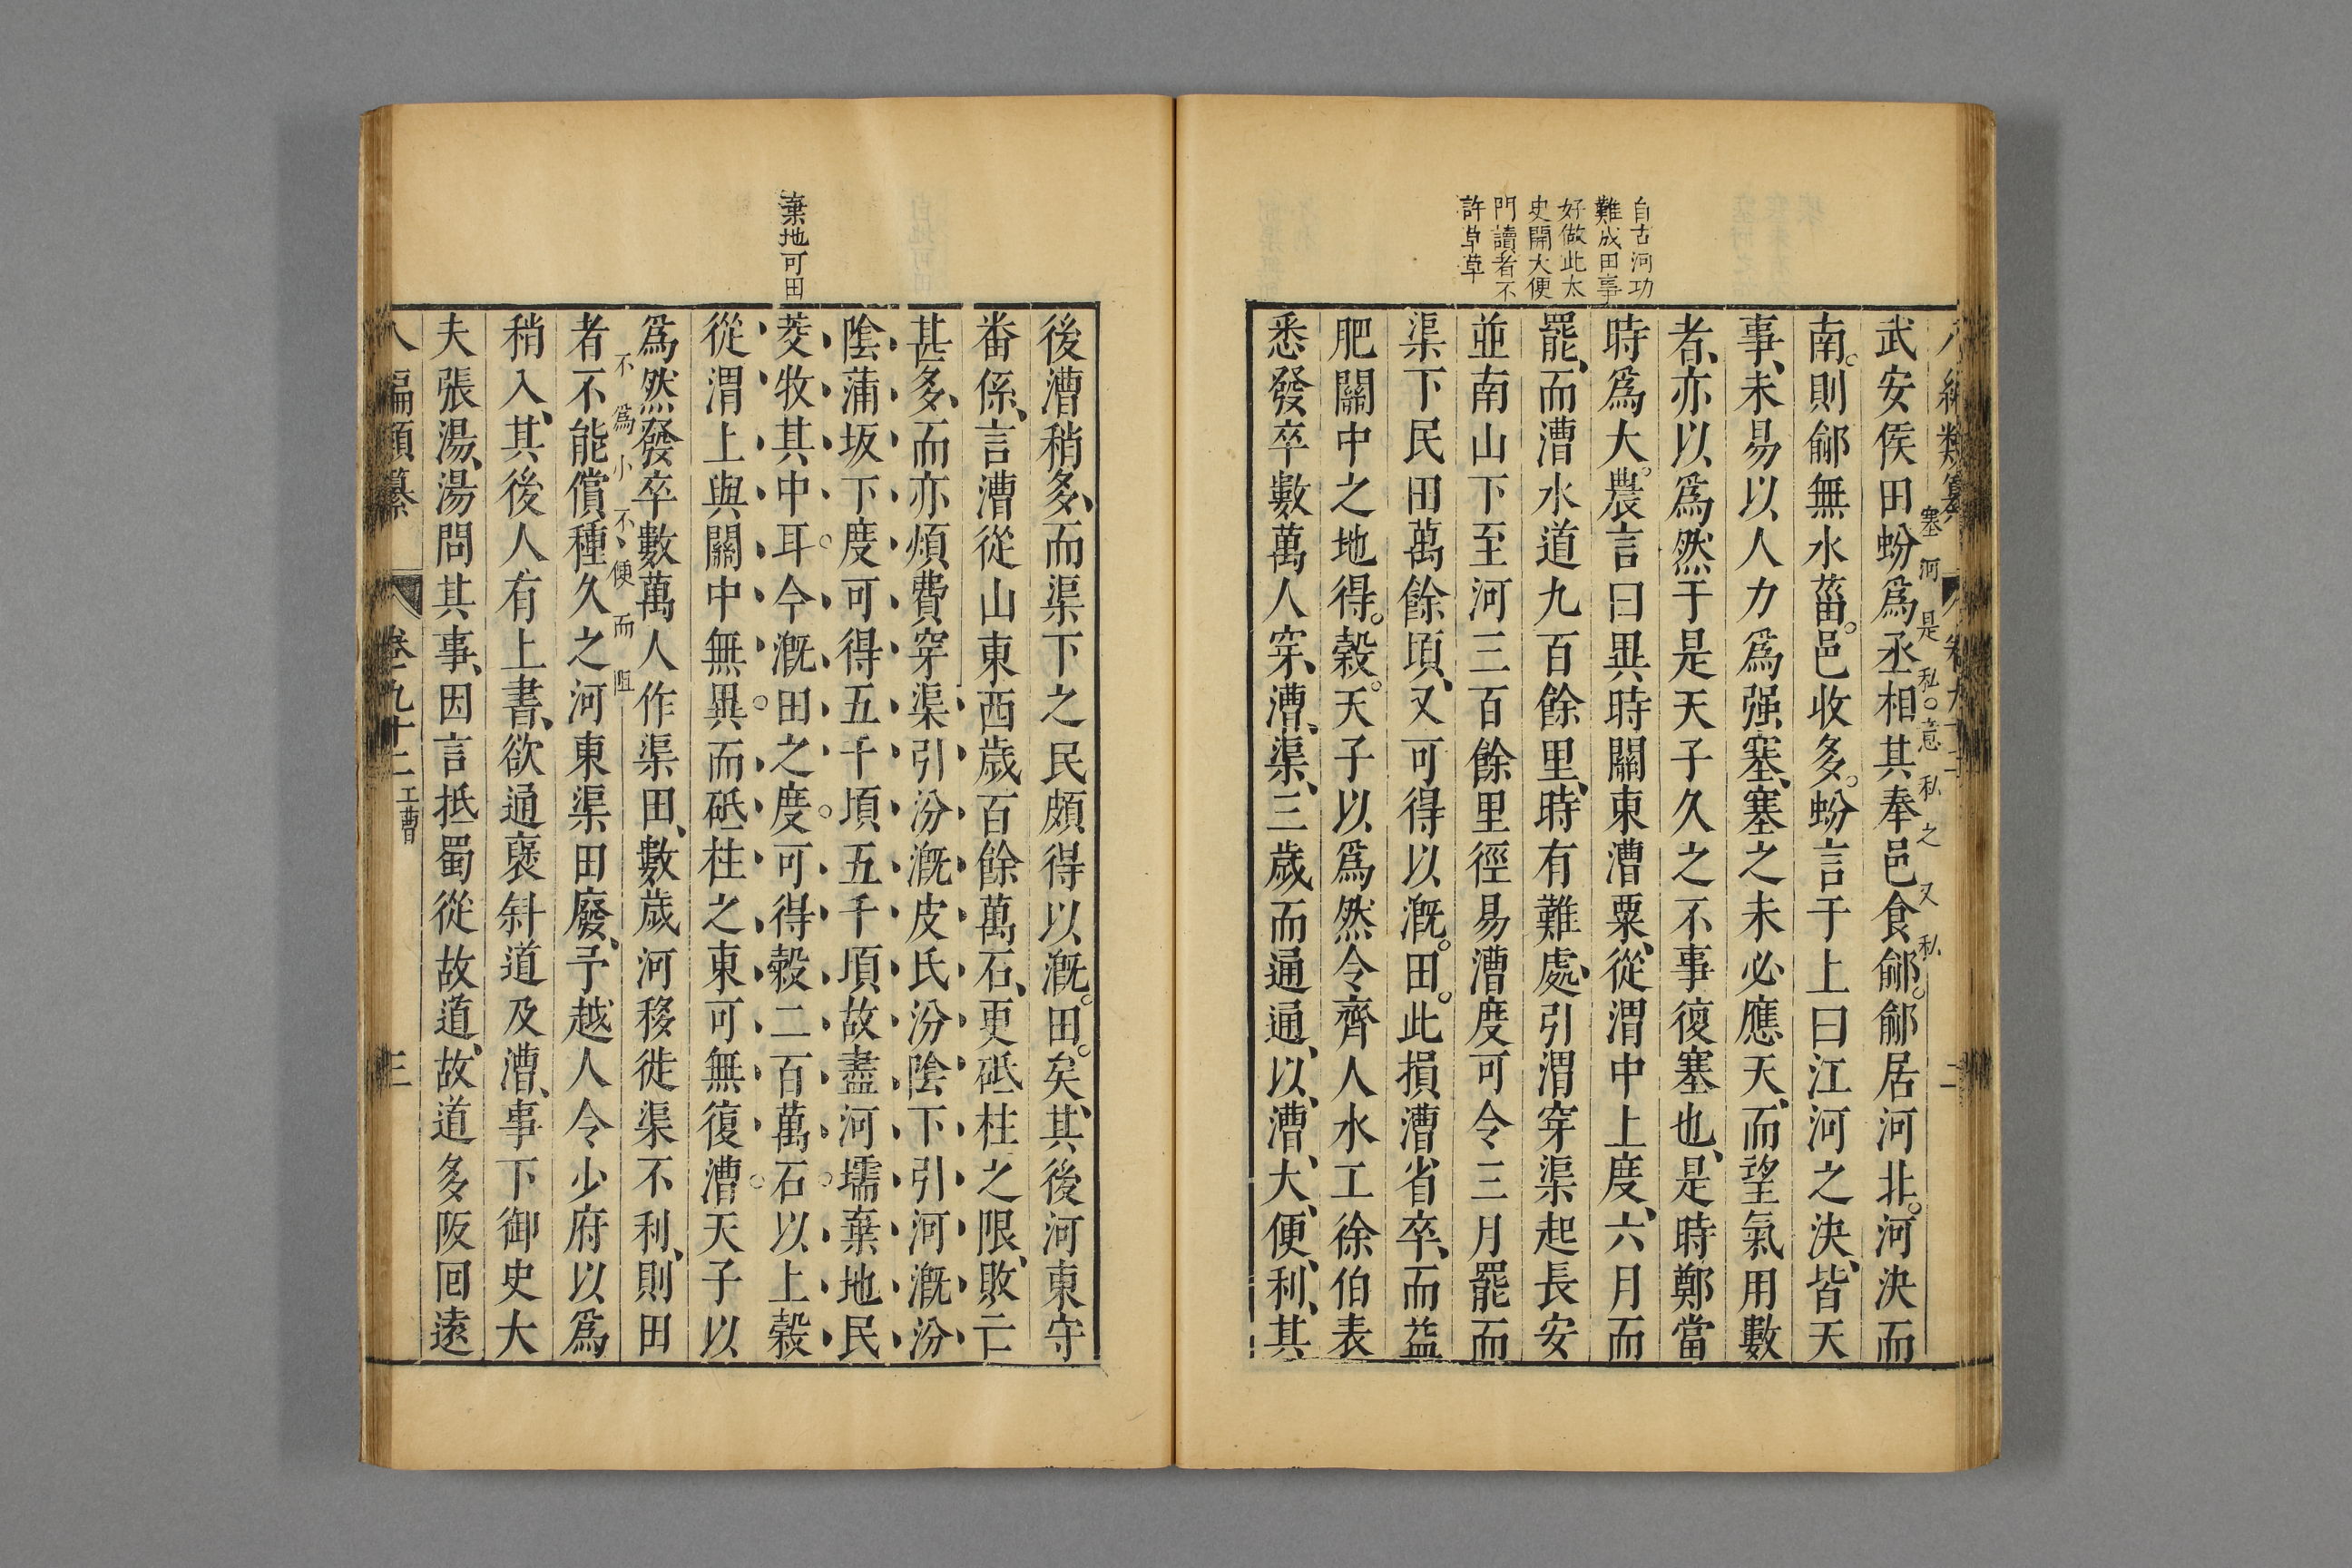 自古河功
難成田事
好做此太
史開大便
門讀者不
許草草
塞河是私意私之又私
武安侯田蚡爲丞相其奉邑食鄃鄃居河北河決而
南則鄃無水菑邑收多蚡言于上曰江河之決皆天
事未易以人力爲强塞塞之未必應天而望氣用數
者亦以爲然于是天子久之不事復塞也是時鄭當
時爲大農言曰異時關東漕粟從渭中上度六月而
罷而漕水道九百餘里時有難處引渭穿渠起長安
並南山下至河三百餘里徑易漕度可令三月罷而
渠下民田萬餘頃又可得以漑田此損漕省卒而益
肥關中之地得穀天子以爲然令齊人水工徐伯表
悉發卒數萬人穿漕渠三歲而通通以漕大便利其
棄地可田
後漕稍多而渠下之民頗得以漑田矣其後河東守
番係言漕從山東西歲百餘萬石更砥柱之限敗亡
甚多而亦煩費穿渠引汾漑皮氏汾陰下引河漑汾
陰蒲坂下度可得五千頃五千頃故盡河壖棄地民
茭牧其中耳今漑田之度可得穀二百萬石以上穀
從渭上與關中無異而砥柱之東可無復漕天子以
爲然發卒數萬人作渠田數歲河移徙渠不利則田
不爲小不便而阻
者不能償種久之河東渠田廢予越人令少府以爲
稍入其後人有上書欲通褒斜道及漕事下御史大
夫張湯湯問其事因言抵蜀從故道故道多阪囘遠
八編類纂 卷九十二 工曹 三